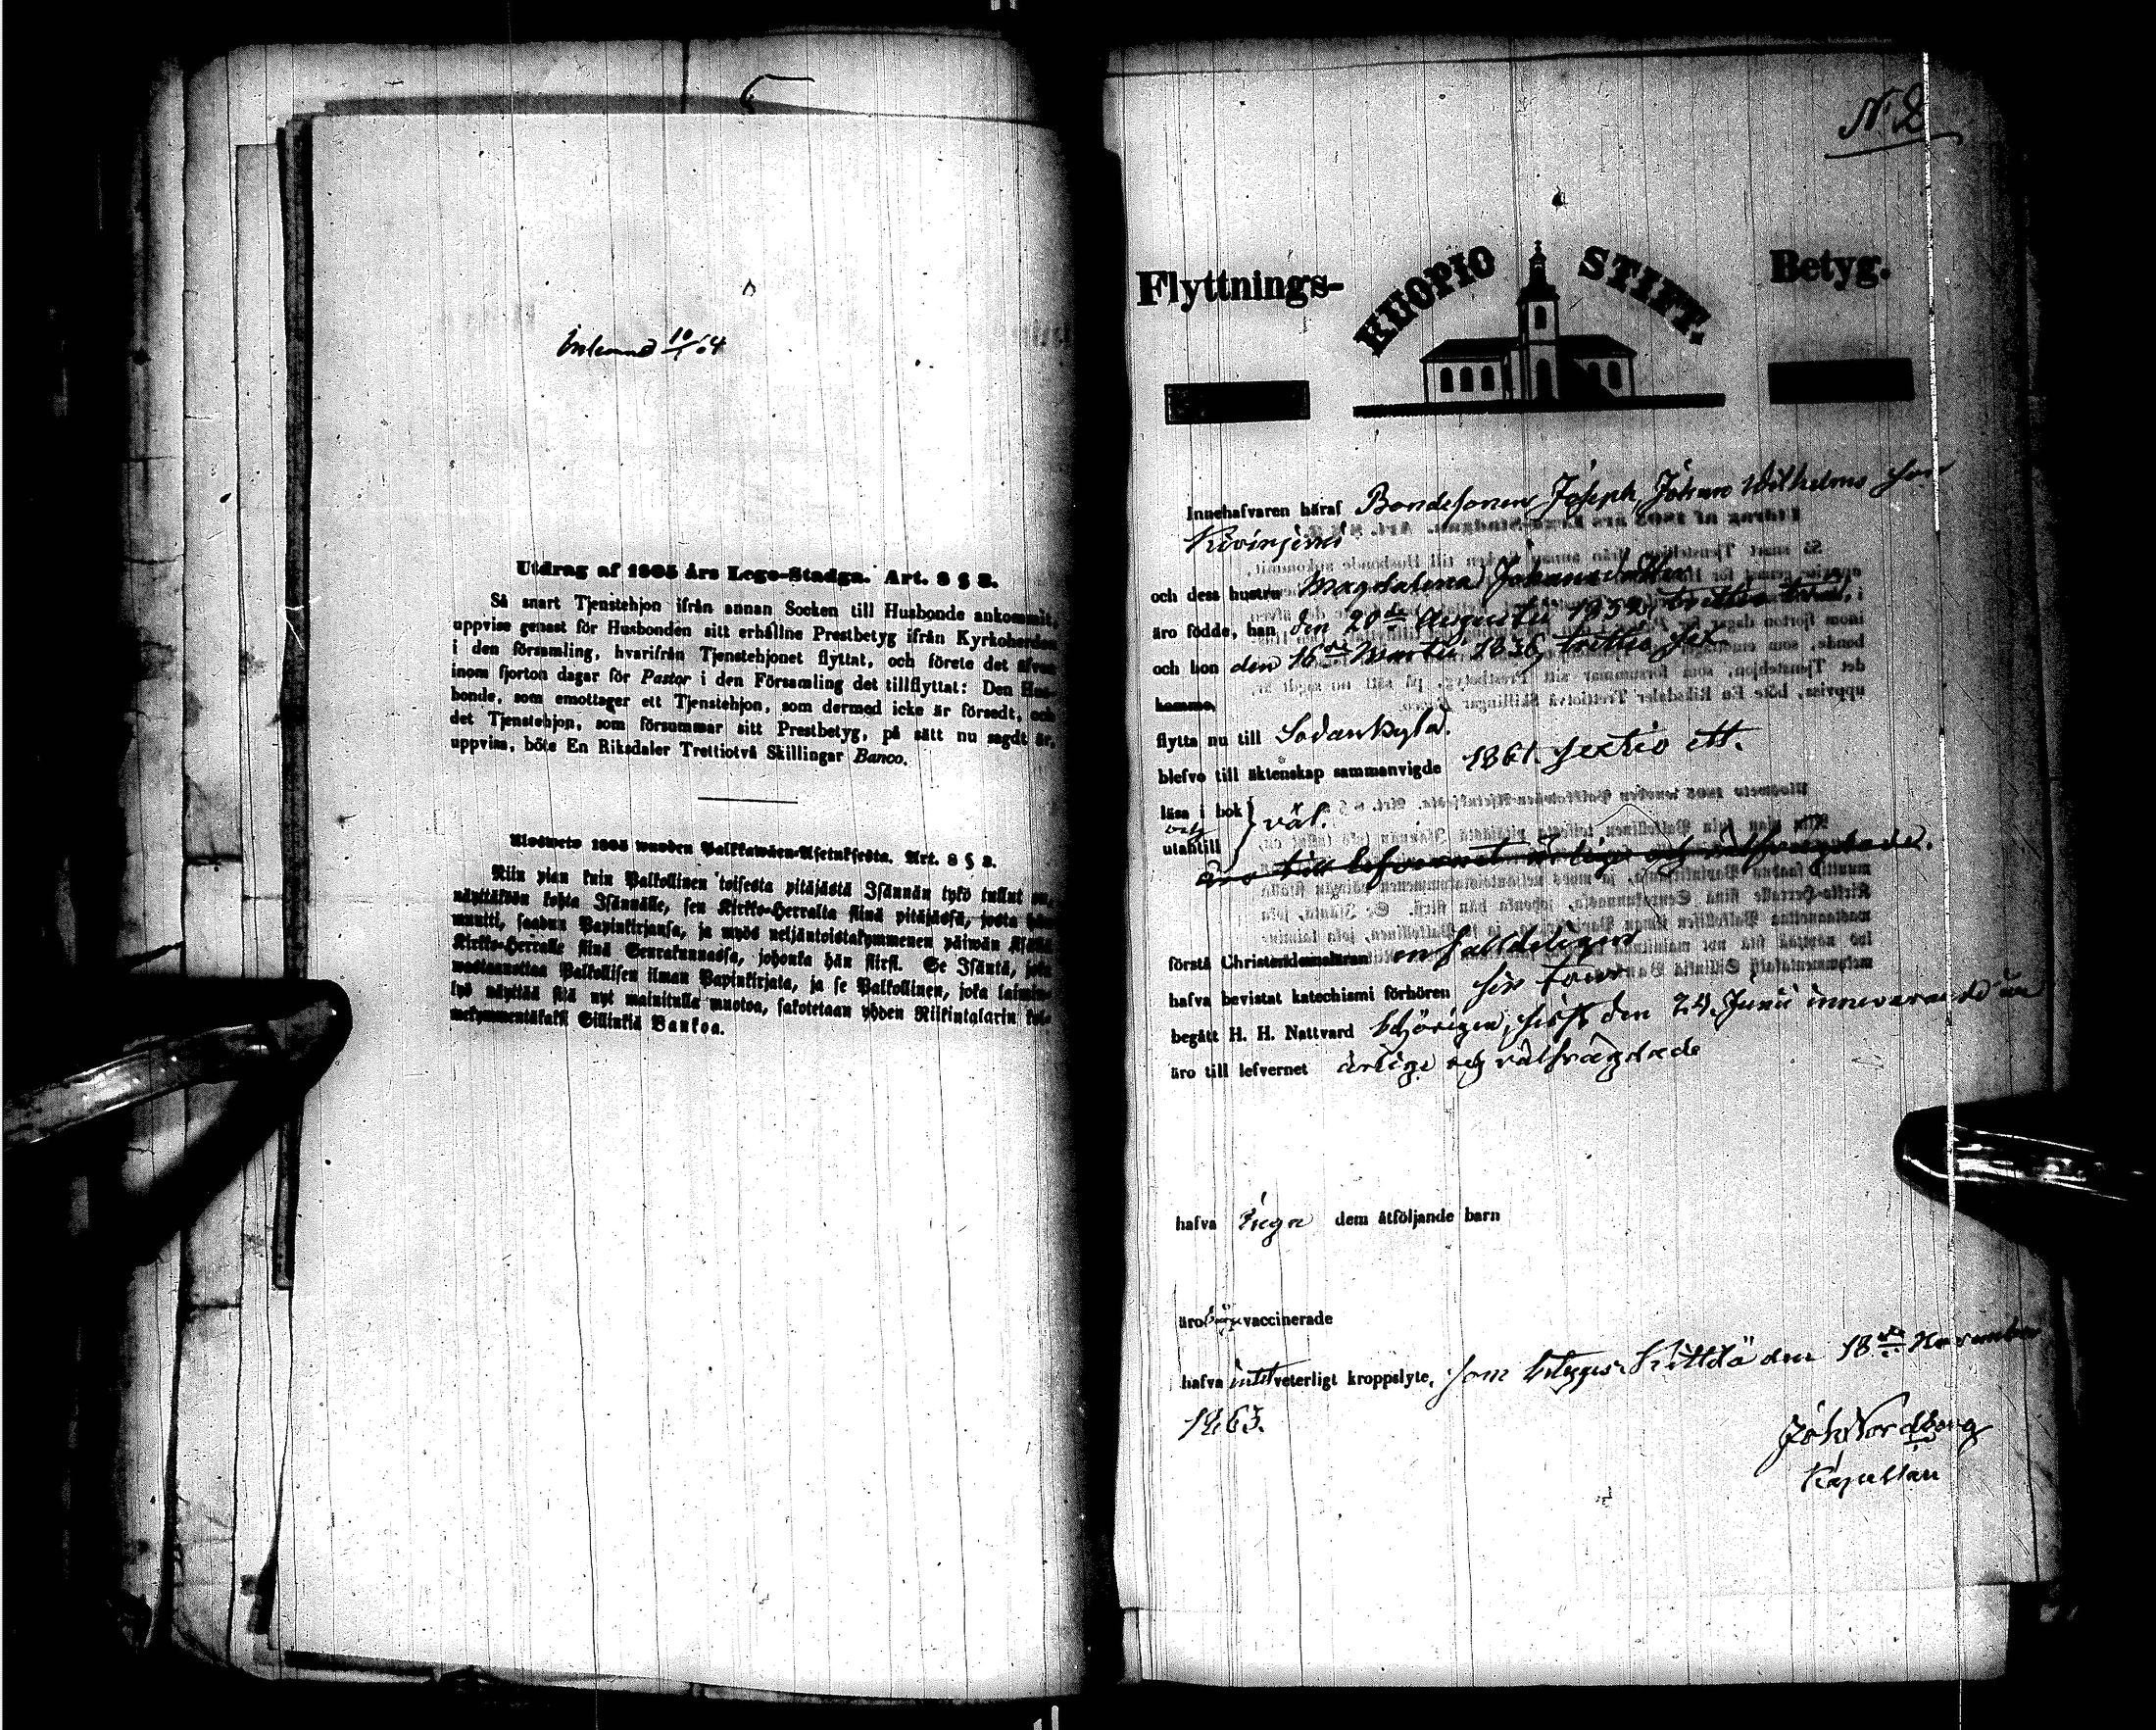 Inkommit 10/1 64
Utdrag af 1805 års Lego-Stadga. Art. 8 § 2.
Så snart Tjenstehjon ifrån annan Socken till Husbonde ankommit,
uppvise genast för Husbonden sitt erhållne Prestbetyg ifrån Kyrkoherden
i den församling, hvarifrån Tjenstehjonet flyttat, och förete det äfven
inom fjorton dagar för Pastor i den Församling det tillflyttat: Den Hus-
bonde, som emottager ett Tjenstehjon, som dermed icke är försedt, och
det Tjenstehjon, som försummar sitt Prestbetyg, på sätt nu sagdt är,
uppvisa, böte En Riksdaler Trettiotvå Skillingar Banco.
Ulosweto 1805 wuoden Palkkawäen-Asetuksesta. Art. 8 § 2.
Niin pian kuin Palkollinen toisesta pitäjästä Isännän tykö tullut on,
näyttäkön kohta Isännälle, sen Kirkko-Herralta siinä pitäjässä, josta hän
muutti, saadun Papinkirjansa, ja myös neljäntoistakymmenen päiwän sisällä
Kirkko-Herralle siinä Seurakunnassa, johonka hän siirsi. Se Isäntä, joka
wastaanottaa Palkollisen ilman Papinkirjata, ja se Palkollinen, joka laimin-
lyö näyttää sitä nyt mainitulla muotoa, sakotetaan yhden Riikintalarin kol-
mekymmentäkaksi Sillinkiä Bankoa.
N. 2
Flyttnings- KUOPIO STIFT. Betyg.
Innehafvaren häraf Bondesonen Joseph Johan Wilhelms son
och dess hustru Magdalena Johansdotter
äro födde, han den 20de Augusti 1832, trettio två,
och hon den 16de Martii 1836, trettio sex
komme,
flytta nu till Sodankylä.
blefvo till äktenskap sammanvigde 1861. sextio ett.
läsa i bok
och väl.
utantill
äro till lefvernet ärlige och välfrägdade.
första Christendomsläran en falldeligen
hafva bevistat katechismi förhören sin tour
begått H. H. Nattvard behörigen, sist den 24 Junii innevarande år
äro till lefvernet ärlige och välfrägdade
hafva inga dem åtföljande barn
äro vaccinerade
hafva intet veterligt kroppslyte, som betygas. Kittilä den 18de November
1863.
Joh Nordberg
Kapellan